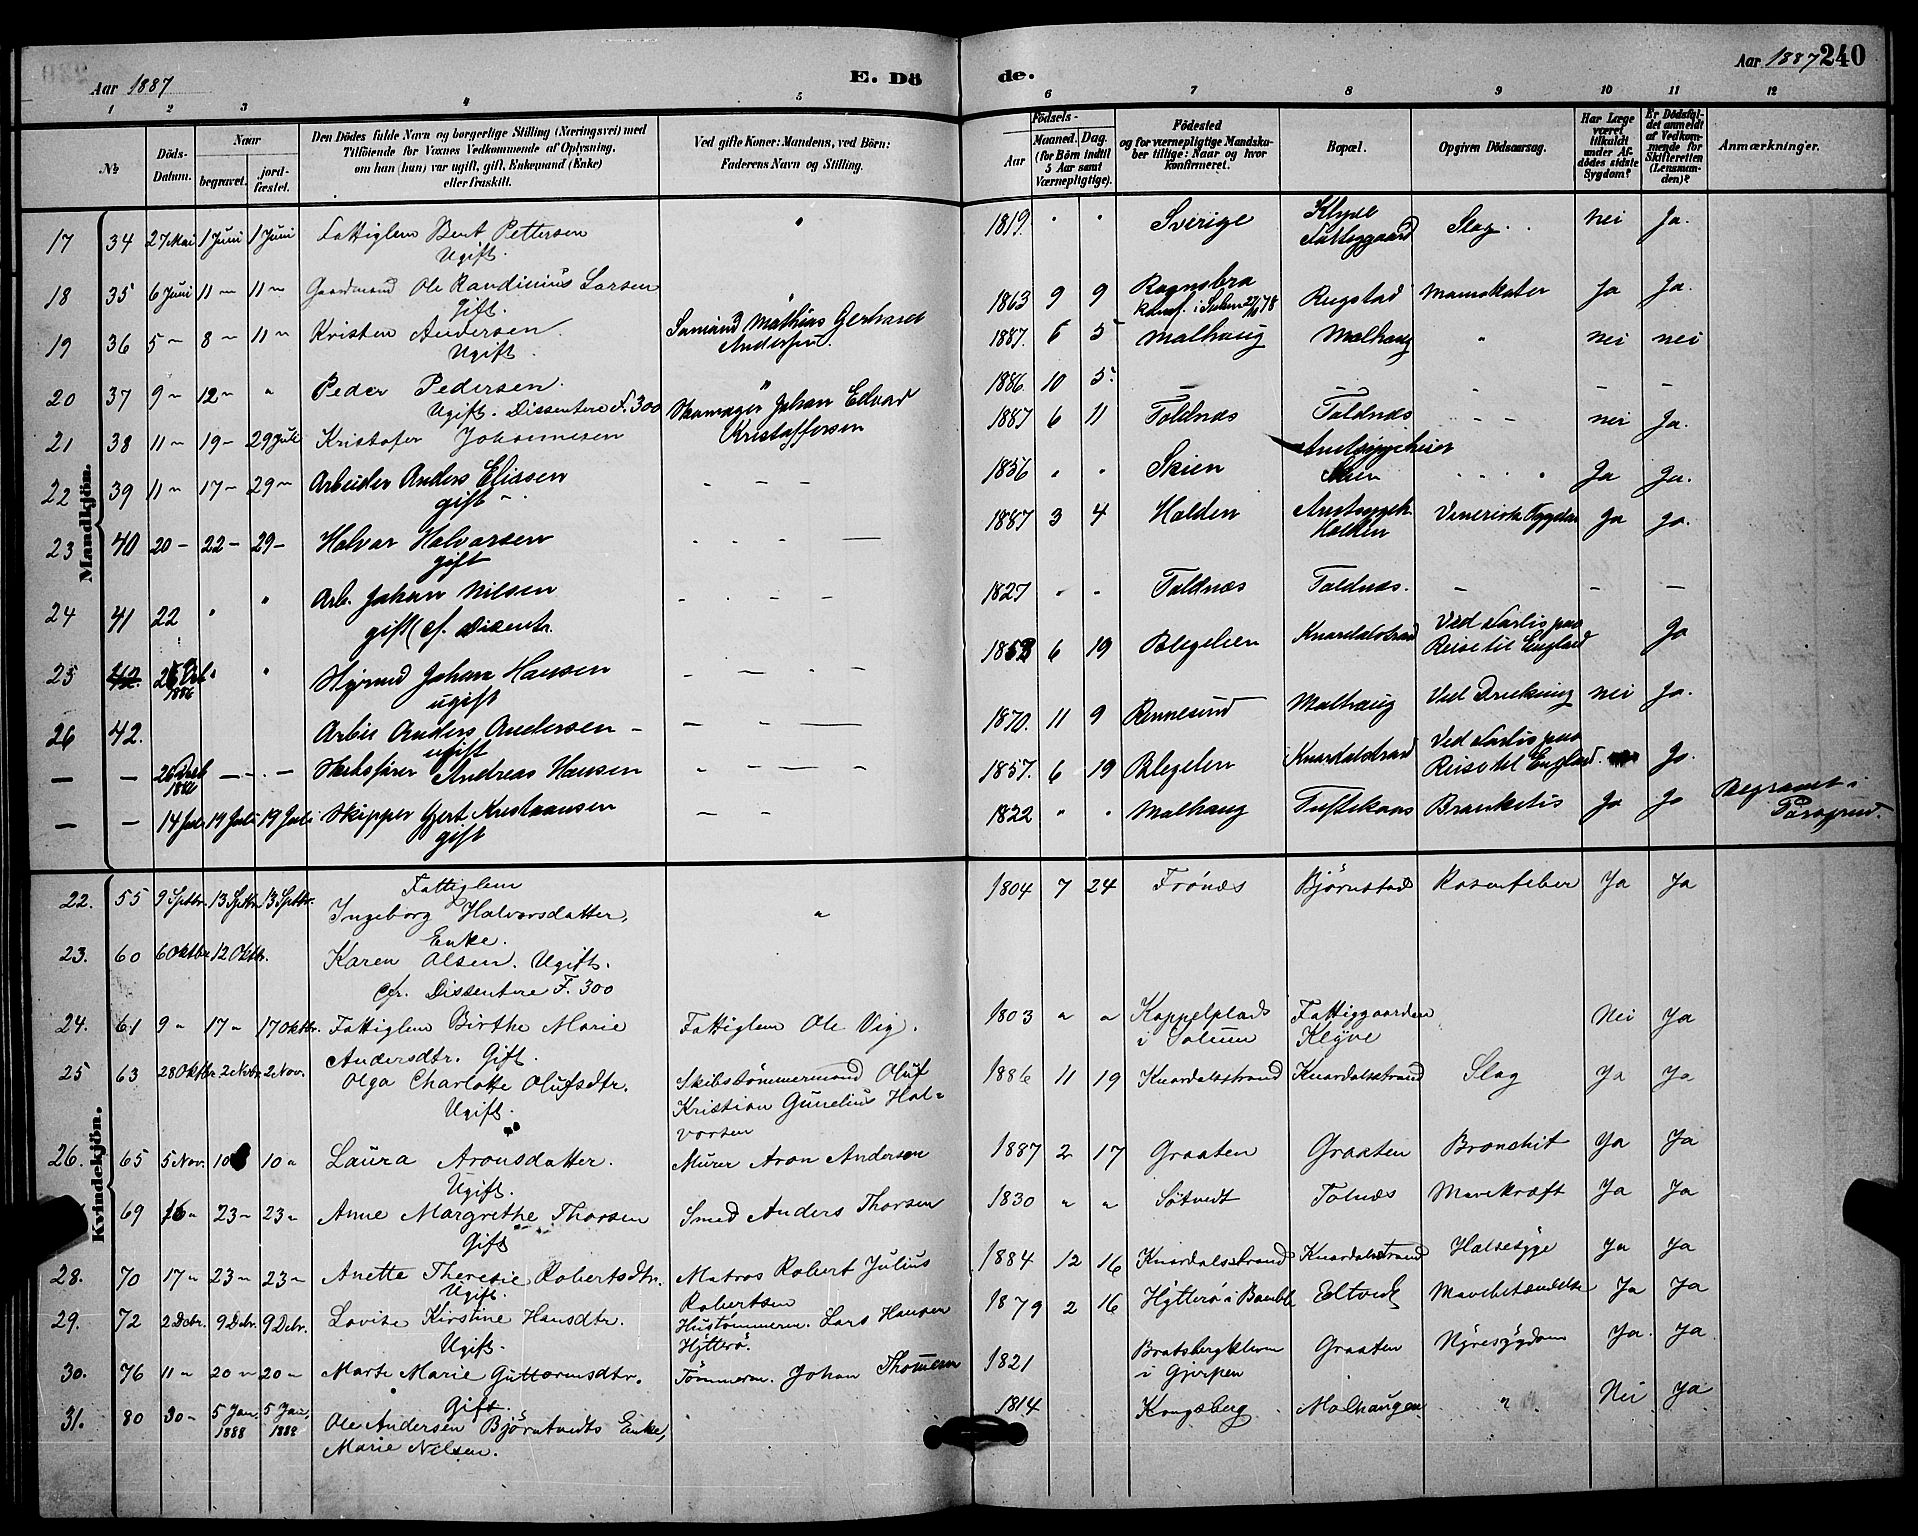 Aar 1887
E. Dö
1 2 3 4 5
№
Döds-
Datum.
Naar
begravet.
jord-
fæstet.
Den Dödes fulde Navn og borgerlige Stilling (Næringsvei) med
Tilföiende for Voxnes Vedkommende af Oplysning,
om han (hun) var ugift, gift, Enkemand (Enke)
eller fraskilt.
Ved gifte Koner: Mandens, ved Börn:
Faderens Navn og Stilling.
Mandkjön.
17 34 27 Mai 1 Juni 1 Juni Fattiglem Bent Pettersen "
Ugift.
18 35 6 Juni 11 " 11 " Gaardmand Ole Randinius Larsen
Gift.
19 36 5 " 8 " 11 " Kristen Andersen Sømand Mathias Gerhardt
Ugift. Andersen.
20 37 9 " 12 " " Peder Pedersen. "
Ugift. Dissentere F. 300
21 38 11 " 19 - 29 Juli Kristofer Johannesen Skomager Johan Edvard
Kristoffersen
22 39 11 " 17 - 29 " Arbeider Anders Eliasen - - -
gift
23 40 20 - 22 - 29 - Halvor Halvorsen
gift
24 41 22 " " Arb. Johan Nilsen - - - -
gift (cf. Disentr.
25 42. 26 1886 " " Johan Hansen
ugift
26 42. Arbei Anders Andersen -
ugift
— — 26 1886 - - - Skibsfører Andreas Hansen
— — 14 Juli 19 Juli 19 Juli Skipper Gjert Kristiansen
gift
Kvindekjön.
22. 55 9 Septbr. 13 Septbr. 13 Septbr. Fattiglem
Ingeborg Halvorsdatter, "
Enke.
23. 60 6 Oktbr 12 Oktbr. Karen Olsen. Ugift.
Cfr. Dissentere F. 300
24. 61 9 " 17 " 17 Oktbr. Fattiglem Birthe Marie Fattiglem Ole Vig.
Andersdtr. Gift.
25 63 28 Oktbr 2 Novbr. 2 Nov. Olga Charlotte Olufsdtr. Skibstömmermand Oluf
Ugift. Kristian Gunelius Hal-
vorsen
26. 65 5 Nov. 10 10 " Laura Aronsdatter. Murer Aron Andersen
Ugift.
69 16 " 23 " 23 " Anne Margrethe Thorsen Smed Anders Thorsen
Gift
28. 70 17 " 23 " 23 " Anette Theresie Robertsdtr. Matros Robert Julius
Ugift. Robertsen
29. 72 2 Debr. 9 Debr. 9 Debr. Lovise Kirstine Hansdtr. Hustömmerm. Lars Hansen
Ugift. Hytterö.
30. 76 11 " 20 " 20 " Marte Marie Guttormsdtr. Tömmerm. Johan Thomesen
Gift.
31. 80 30 " 5 Jan. 1888 5 Jan. 1888 Ole Andersen Björntvedts Enke,
Marie Nilsen.
de.
Aar 1887 240
6 7 8 9 10 11 12
Födsels-
Aar
Maaned. Dag.
(for Börn indtil
5 Aar samt
Værnepligtige).
Födested
og for værnepligtige Mandska-
ber tillige: Naar og hvor
konfirmeret.
Bopæl.
Opgiven Dödsaarsag.
Har Læge
været
tilkaldt
under Af-
dödes sidste
Sygdom?
Er Dödsfal-
det anmeldt
af Vedkom-
mende for
Skifteretten
(Lensman-
den)?
Anmærkninger.
1819. " " Sverige Klyve Fattiggaard Slag. nei Ja.
1863 9 9 Rognsbra Rugstad Ja Ja.
1887. 6 5 Malhaug Malhaug " nei nei
1886. 10 5. - - -
1887 6 11 Toldnæs Toldnæs - - nei Ja.
1856 " " Skien Amtssygehuset Skien Ja Ja.
1887 3 4 Holden Amtssygeh. Holden Venerisk Sygdom Ja Ja.
1827 " " Toldnæs Toldnæs. - - -
6 19 Blegelien Knardalstrand Ved Forlis paa
Reise til England Ja
1870. 11 9 Rennesund Malhaug Ved Drukning nei Ja.
1857. 6 19 Blegelien Knardalstrand Ved Forlis paa
Reise til England. Ja.
1822 " " Malhaug Tuftekaas Bronketis Ja Ja Begravet i
Porsgrund.
1804 7 24 Frónæs Björnstad Rosenfeber Ja Ja
1803 " " Koppelplads Fattiggaarden Nei Ja
i Solum Klyve
1886 11 19 Knardalsstrand Knardalsstrand Slag Ja Ja
1887 2 17 Graaten Graaten Bronchit Ja Ja
1830 " " Sötvedt Tolnæs Mavekræft Ja Ja
1884 12 16 Knardalsstrand Knardalsstrand Halsesyge Ja Ja
1879 2 16 Hytterö i Bamble Eltvedt Mavebetændelse Ja Ja
1821 Bratsbergkleven Graaten Nyresygdom Ja. Ja.
i Gjerpen
1814 Kongsberg Malhaugen " Nei Ja